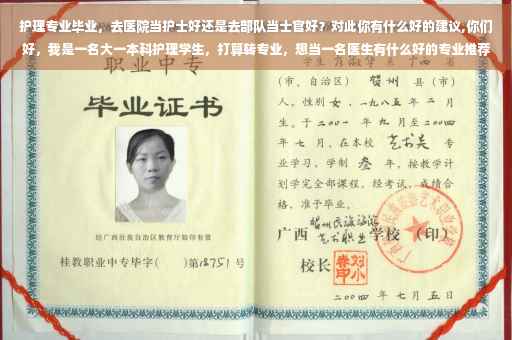 护理专业毕业，去医院当护士好还是去部队当士官好？对此你有什么好的建议,你们
好，我是一名大一本科护理学生，打算转专业，想当一名医生有什么好的专业推荐
职业中专
毕业证书
经广西壮族自治区教育厅验印有效
桂教职业中专毕字（ ）第18751号
（市、自治区）贺州 县（市）
人，性别女，一九八五年二月
生。于二〇〇一年九月至二〇〇四
年七月，在本校 艺术类 专
业学习，学制叁年，按教学计
划学完全部课程，经考试，成绩合
格，准予毕业。
贺州民族旅游
广西 艺术职业学校（印）
校长
二〇〇四年七月五日